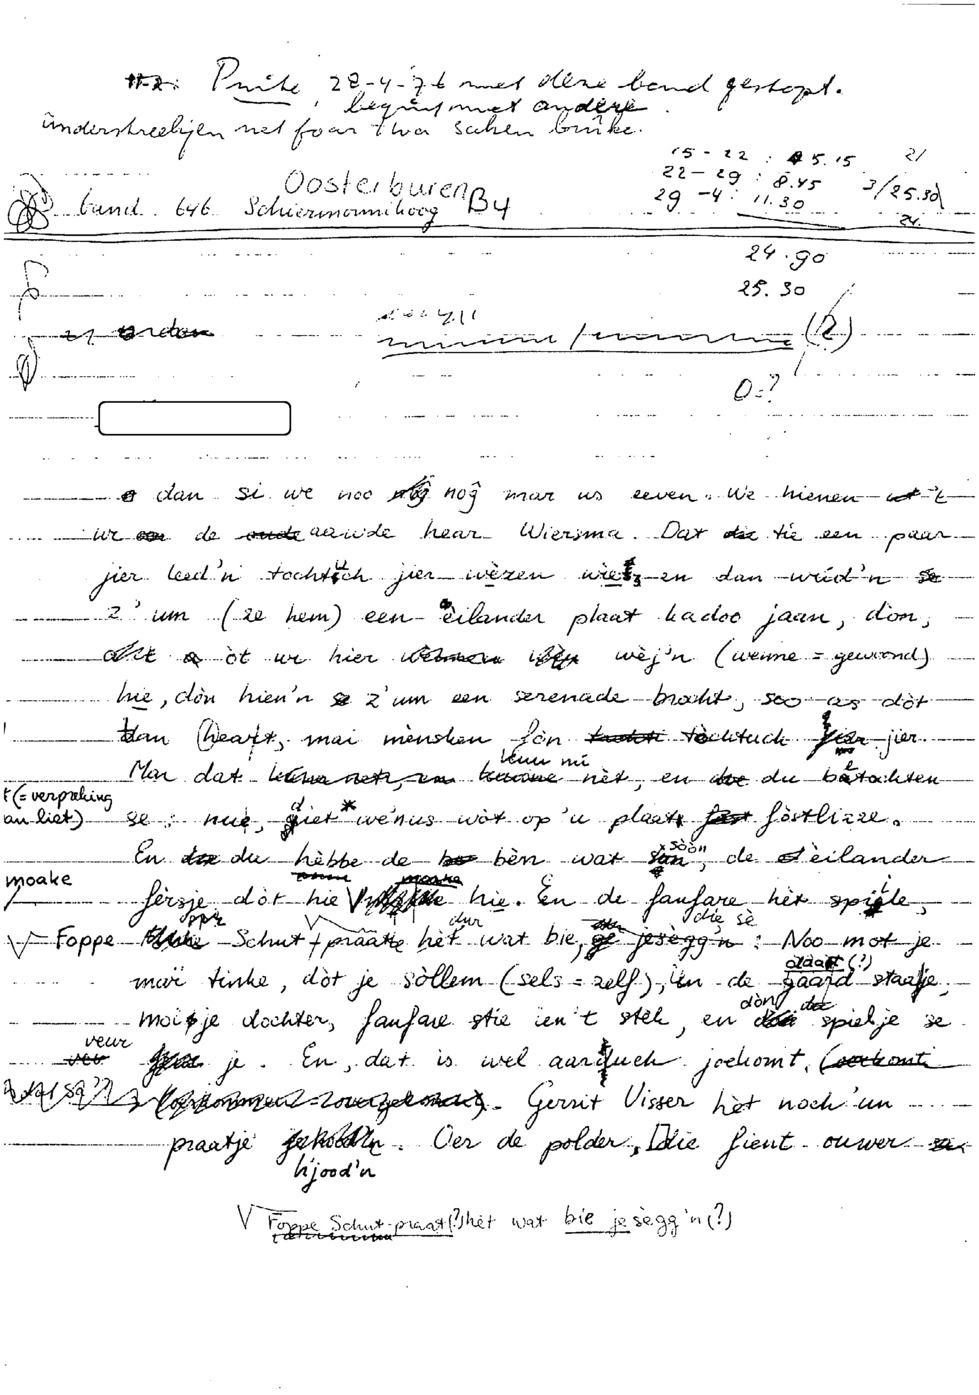 Puite 28-4-76 met deze band gestopt.
begint met andere.
ûnderstreekjen net foar twa saken brûke.
15-22 : 5.15 21
22-29 : 8.45 3/25.30
29-4 : 11.30 24.
Oosterburen B4
band 646 Schiermonnikoog
24.90
25.30
(2)
0=?
dan si we noo nog mar us eeven. We hienen 't
ur de aawde hear Wiersma. Dat tie een paar
jier leed'n tochtuch jier wèzen en dan wúd'n
z' um (ze hem) een eilander plaat kadoo jaan, dòn,
òt ur hier wèj'n (wenne = gewoond)
hie, dòn hien'n z'um een serenade brocht, soo as dòt
dan heart, mai mènsken fòn tòchtuch jier.
kuu nü
Mar dat nèt, en du batachten
t (= verpraking
an liet) se: nue, diet * wênus wòt op 'u plaat fòstlizze.
En du hèbbe de bèn wat sòòn, de eilander
moake
fèrsje dòt hie hie. En de fanfare hèt spiele,
Foppe Schut praatte hèt wat bie, jesègg'n: Noo mot je
oldaat (?)
maï tinke, dòt je sòllem (sels = zelf), iin de gaard staatje,
moisje dochter, fanfare stie ien't stek, en dòn spielje se
veur je. En, dat is wel aarduch joekomt.
Gerrit Visser hèt noch 'un
praatje hjood'n. Oer de polder, die fient ouwer
V Foppe Schut praat (?) hèt wat bie jesègg'n (?)